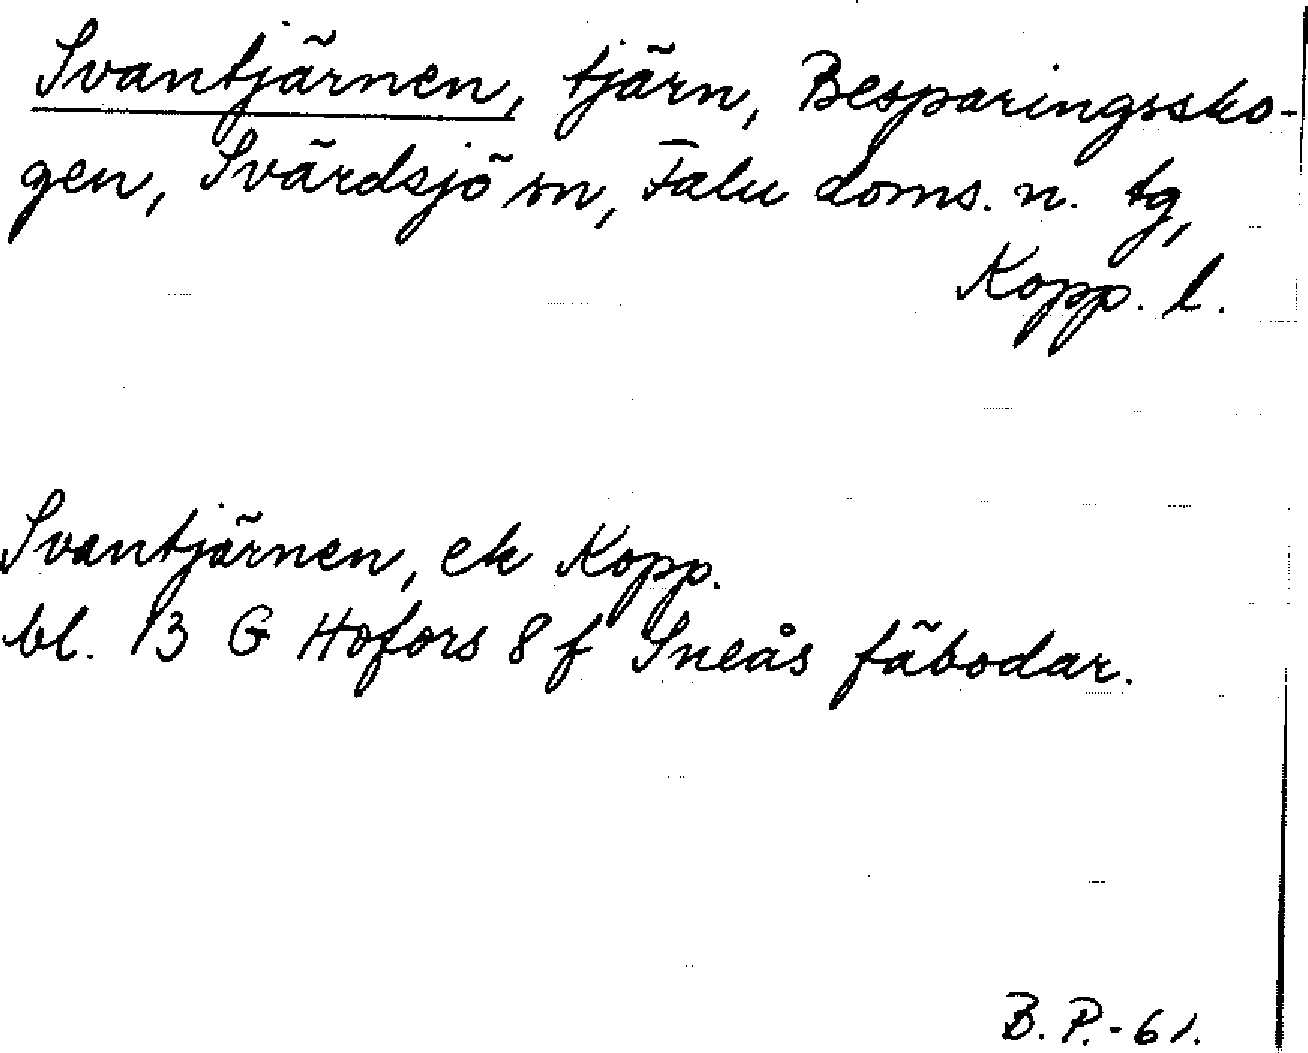 Svantjärnen, tjärn, Besparingssko-
gen, Svärdsjö sn, Falu doms. n. tg,
Kopp. l.
Svantjärnen, ek Kopp.
bl. 13 G Hofors 8 f Sneås fäbodar.
B. P. - 61.